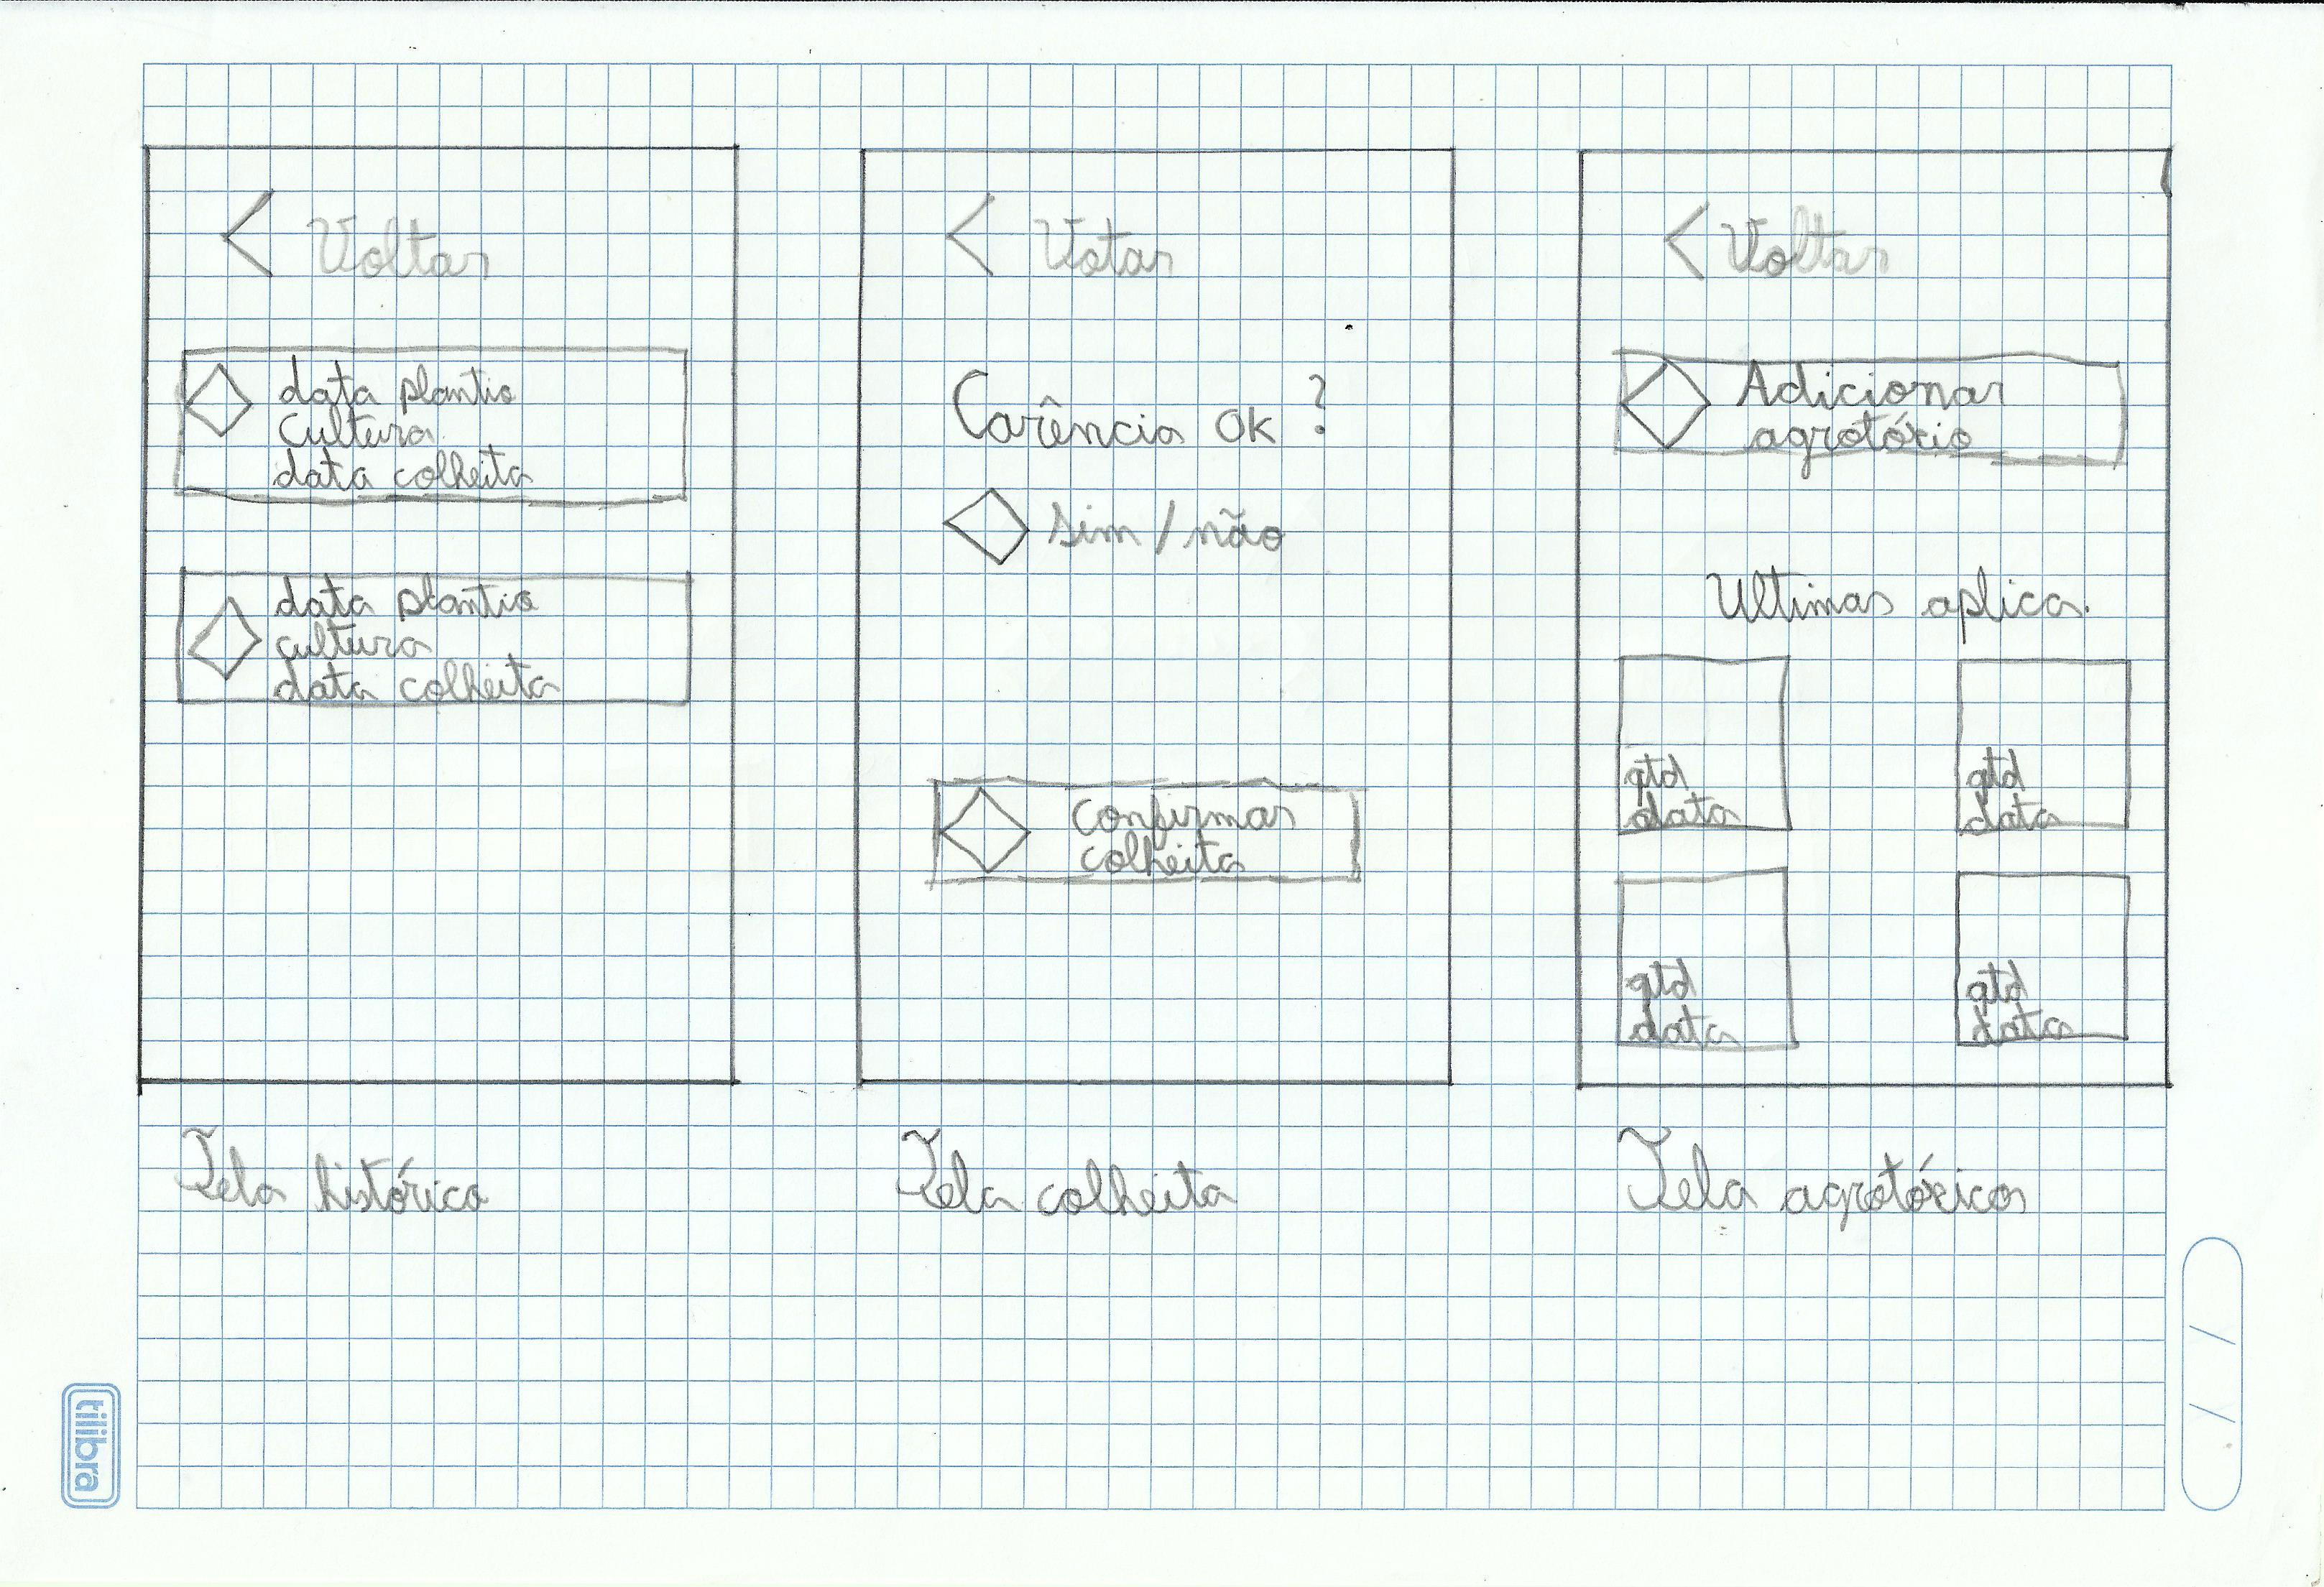 < Voltar
data plantio
Cultura
data colheita
data plantio
cultura
data colheita
Tela histórico
< Votar
Carência OK ?
sim / não
confirmar
colheita
Tela colheita
< Voltar
Adicionar
agrotóxio
Ultimas aplica.
qtd
data
qtd
data
qtd
data
qtd
data
Tela agrotóxicos
/ /
tilibra